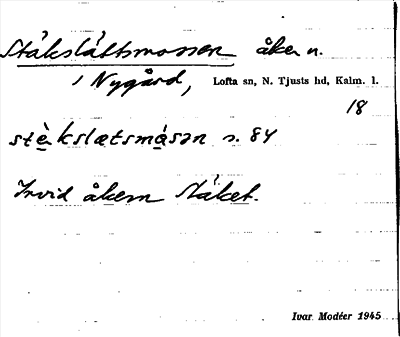 Ståkslåttsmossen åker n.
/ Nygård, Lofta sn, N. Tjusts hd, Kalm. l.
18
stèkslætsmåsən s. 84
Invid åkern Ståket.
Ivar Modéer 1945